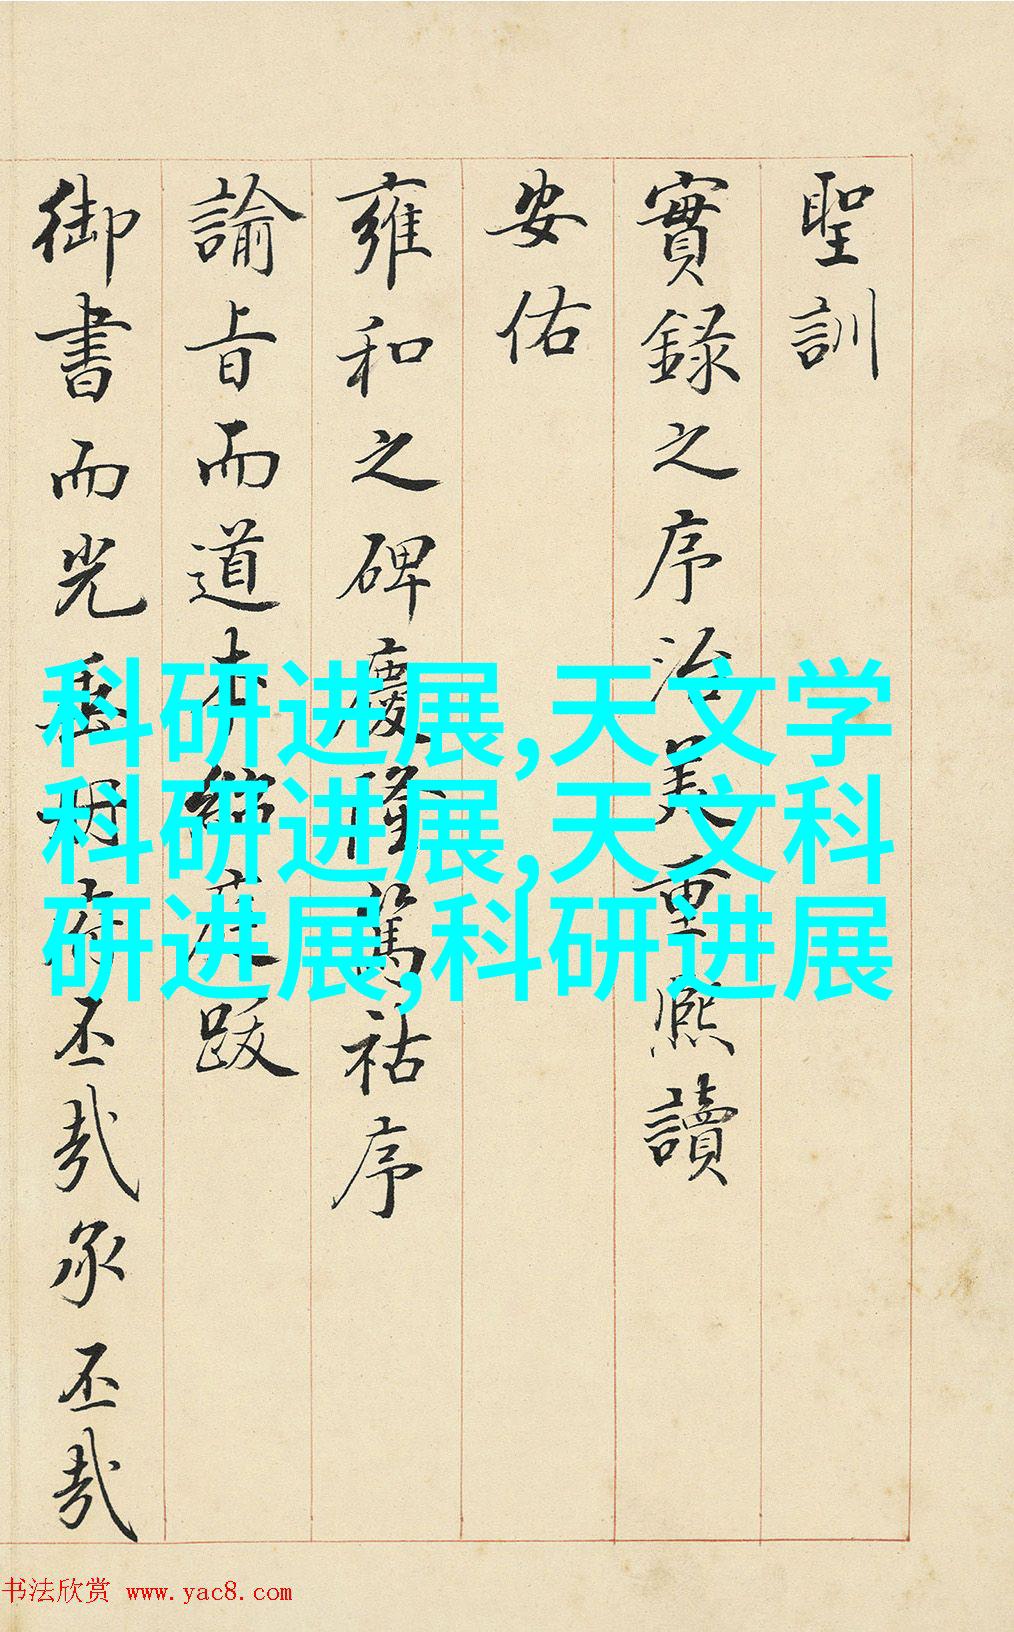 聖訓
實録之序治美重熈讀
安佑
雍和之碑慶隆舊祜序
諭旨而道本締庭跋
御書而光垂丕哉承丕哉
科研进展,天文学
科研进展,天文科
研进展,科研进展
书法欣赏 www.yac8.com